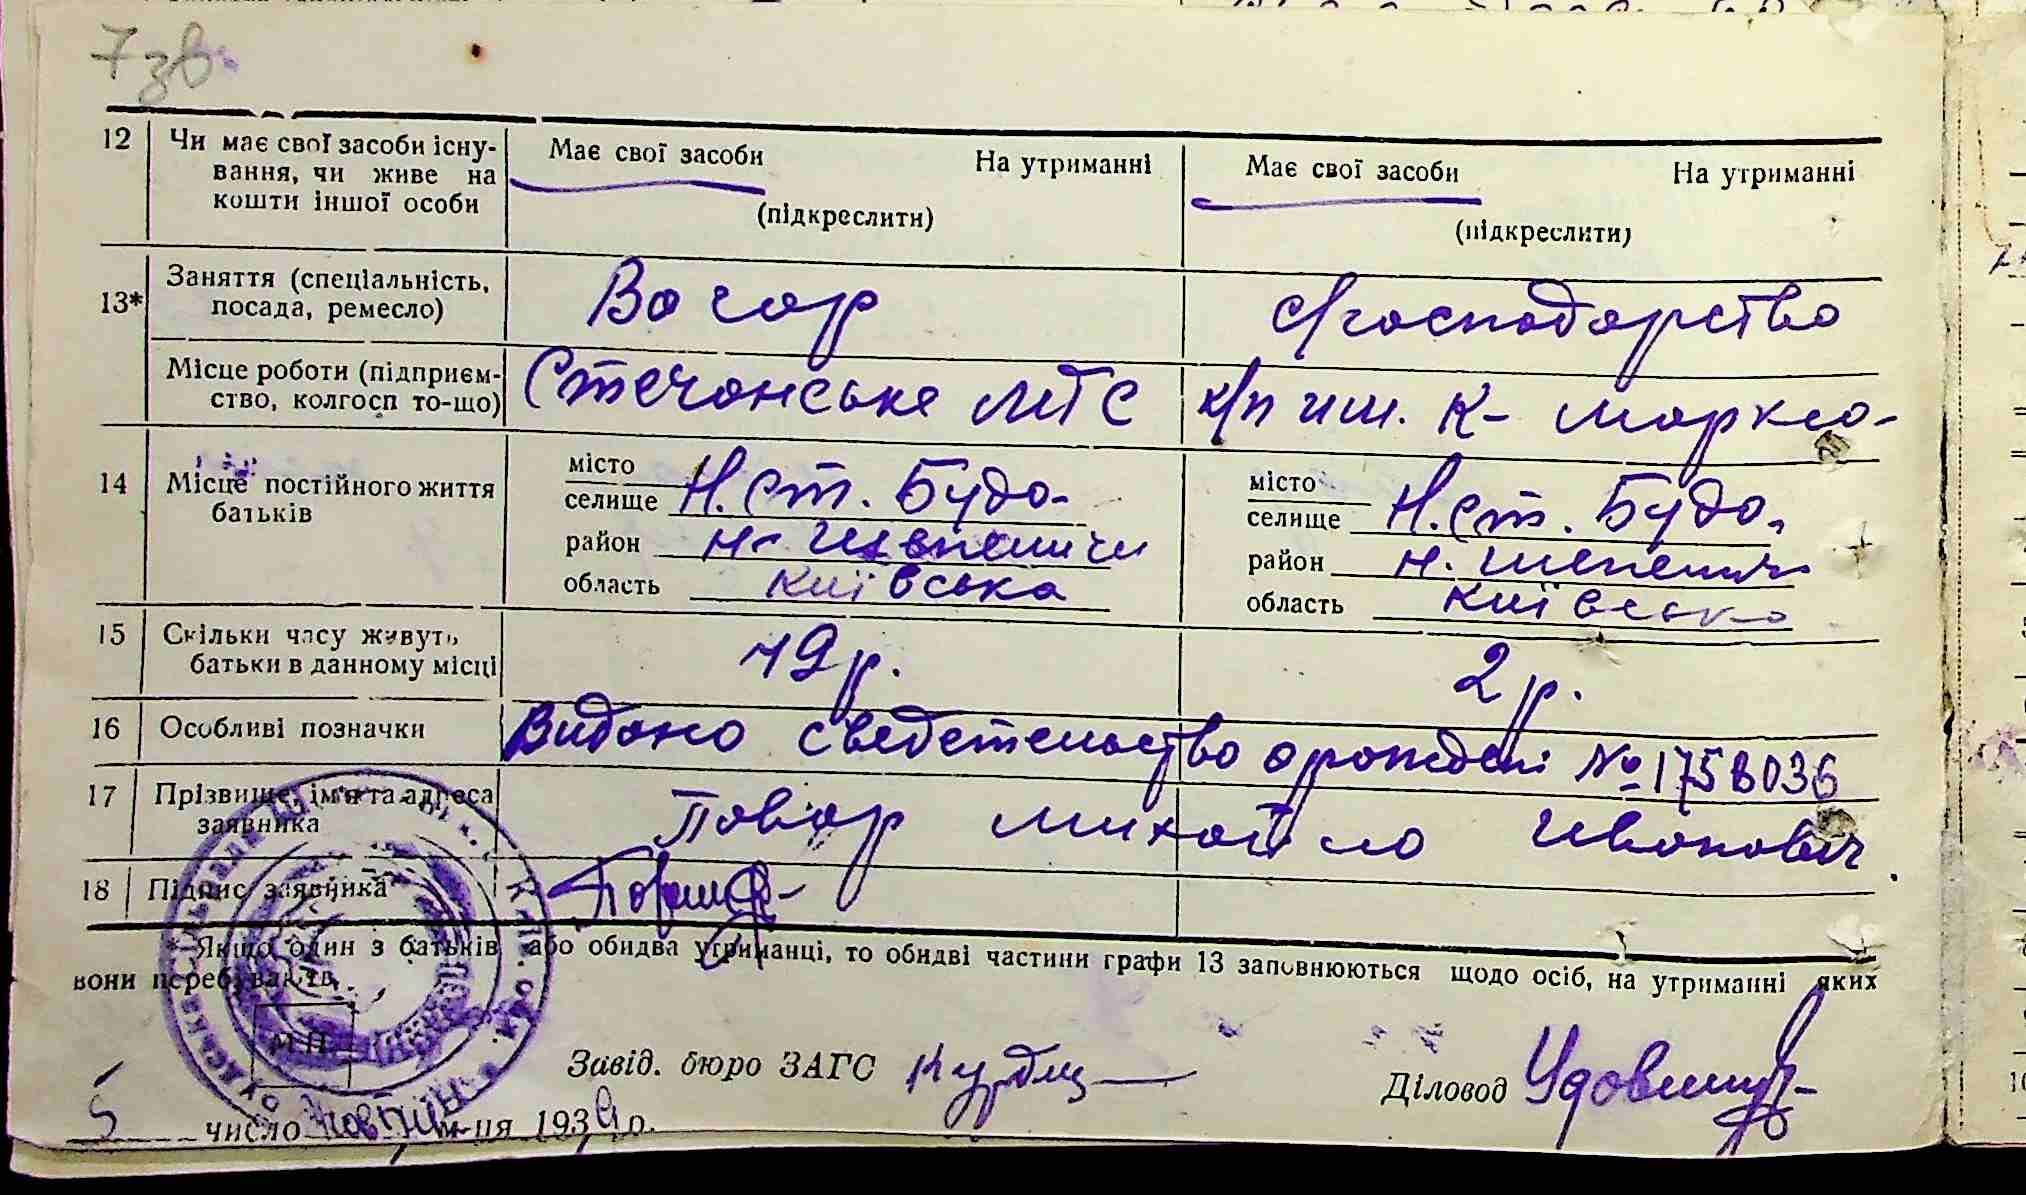 7 зв.
12 Чи має свої засоби існу-
вання, чи живе на
кошти іншої особи
Має свої засоби На утриманні
(підкреслити)
Має свої засоби На утриманні
(підкреслити)
13* Заняття (спеціальність,
посада, ремесло)
с/господарство
Місце роботи (підприєм-
ство, колгосп то-що)
Стечанське МТС
к/п им. К- Маркса-
14 Місце постійного життя
батьків
місто
селище Н.Ст. Буда-
район н- Шепеличи
область Київська
місто
селище Н.Ст. Буда,
район н. Шепелич
область Київсько
15 Скільки часу живуть
батьки в данному місці
49 р.
2 р.
16 Особливі позначки
Видано сведетельство о рождені № 1758036
17 Прізвище, ім'я та адреса
заявника
Повар Михайло Иванович.
18 Підпис заявника
* Якщо один з батьків або обидва утриманці, то обидві частини графи 13 заповнюються щодо осіб, на утриманні яких
вони перебувають.
М.П.
Завід. бюро ЗАГС
Діловод
5 число м-ця 1939 р.